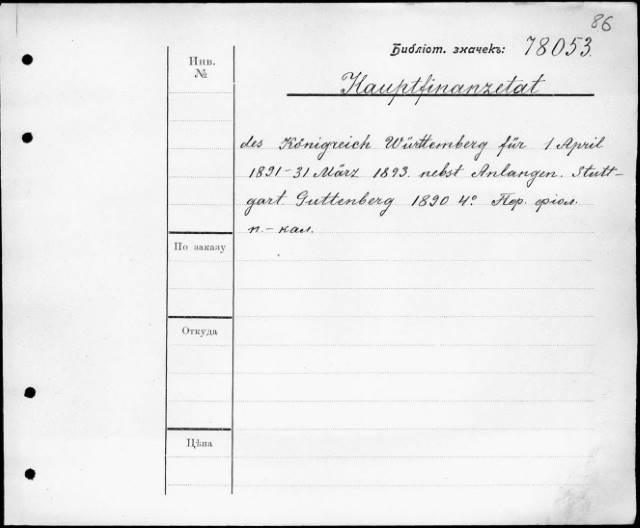 86
Библіот. значекъ: 78053.
Инв.
№
Hauptfinanzetat
des Königreich Württemberg für 1 April
1891-31 März 1893. nebst Anlangen. Stutt-
gart. Guttenberg 1890 4º. Пер. фіол.
п.-кал.
По заказу
Откуда
Цѣна